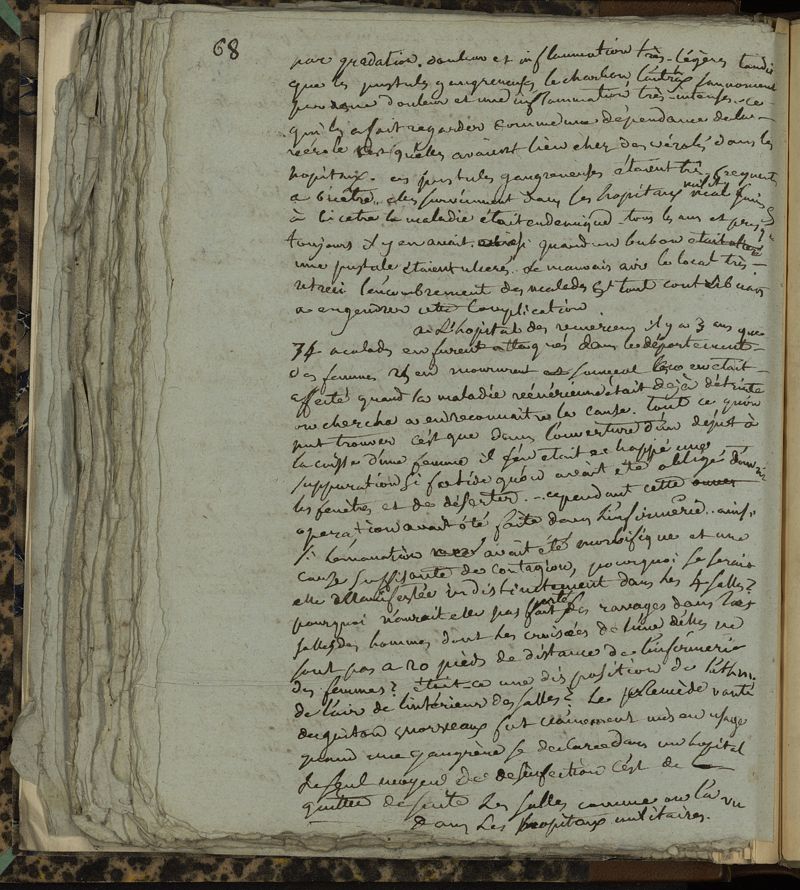 68
par gradation. douleur et inflammation très-légères tandis
que les pustules gangreneuses le charbon l'antrax
par une douleur et une inflammation très-intenses. ce
qui les a fait regarder comme une dépendance de la
verole c'est qu'elles avaient lieu chez des vérolés dans les
hopitaux. ces pustules gangreneuses étaient très frequentes
a bicêtre. elles surviennent dans les hopitaux mal
à bicetre la maladie était endemique tous les ans et presq
toujours il y en avait. quand un bubon etait
une pustule étaient ulcerés. Le mauvais air le local très-
retreci l'encombrement des malades Est tout contribuait
a engendrer cette Complication
a L'hopital des veneriens il y a 3 ans que
34 malades en furent attaqués dans le département
des femmes 25 en moururent et souvent on en était
affecté quand la maladie vénérienne était dejà détruite
on chercha a en reconnaitre la cause. tout ce qu'on
put trouver c'est que dans l'ouverture d'un depot à
la cuisse d'une femme il s'en etait echappé une
suppuration si fœtide qu'on avait été obligé d'ouvrir
les fenêtres et de déserter. cependant cette
operation avait été faite dans l'infirmerie. ainsi
si l'emanation avait été morbifique et une
cause suffisante de contagion, pourquoi se serait
elle manifestée indistinctement dans les 4 salles?
pourquoi n'aurait elle pas porté des ravages dans les
salles des hommes dont les croisées de l'une d'elles ne
sont pas a 20 pieds de distance de l'infirmerie
des femmes? était ce une disposition de l'athm.
de l'air de l'intérieur des salles? Le remède vanté
de guiton morveaux fut vainement mis en usage
quand une gangrène se declare dans un hopital
le seul moyen de desinfection c'est de
quitter de suite les salles comme on l'a vu
dans les hopitaux militaires.